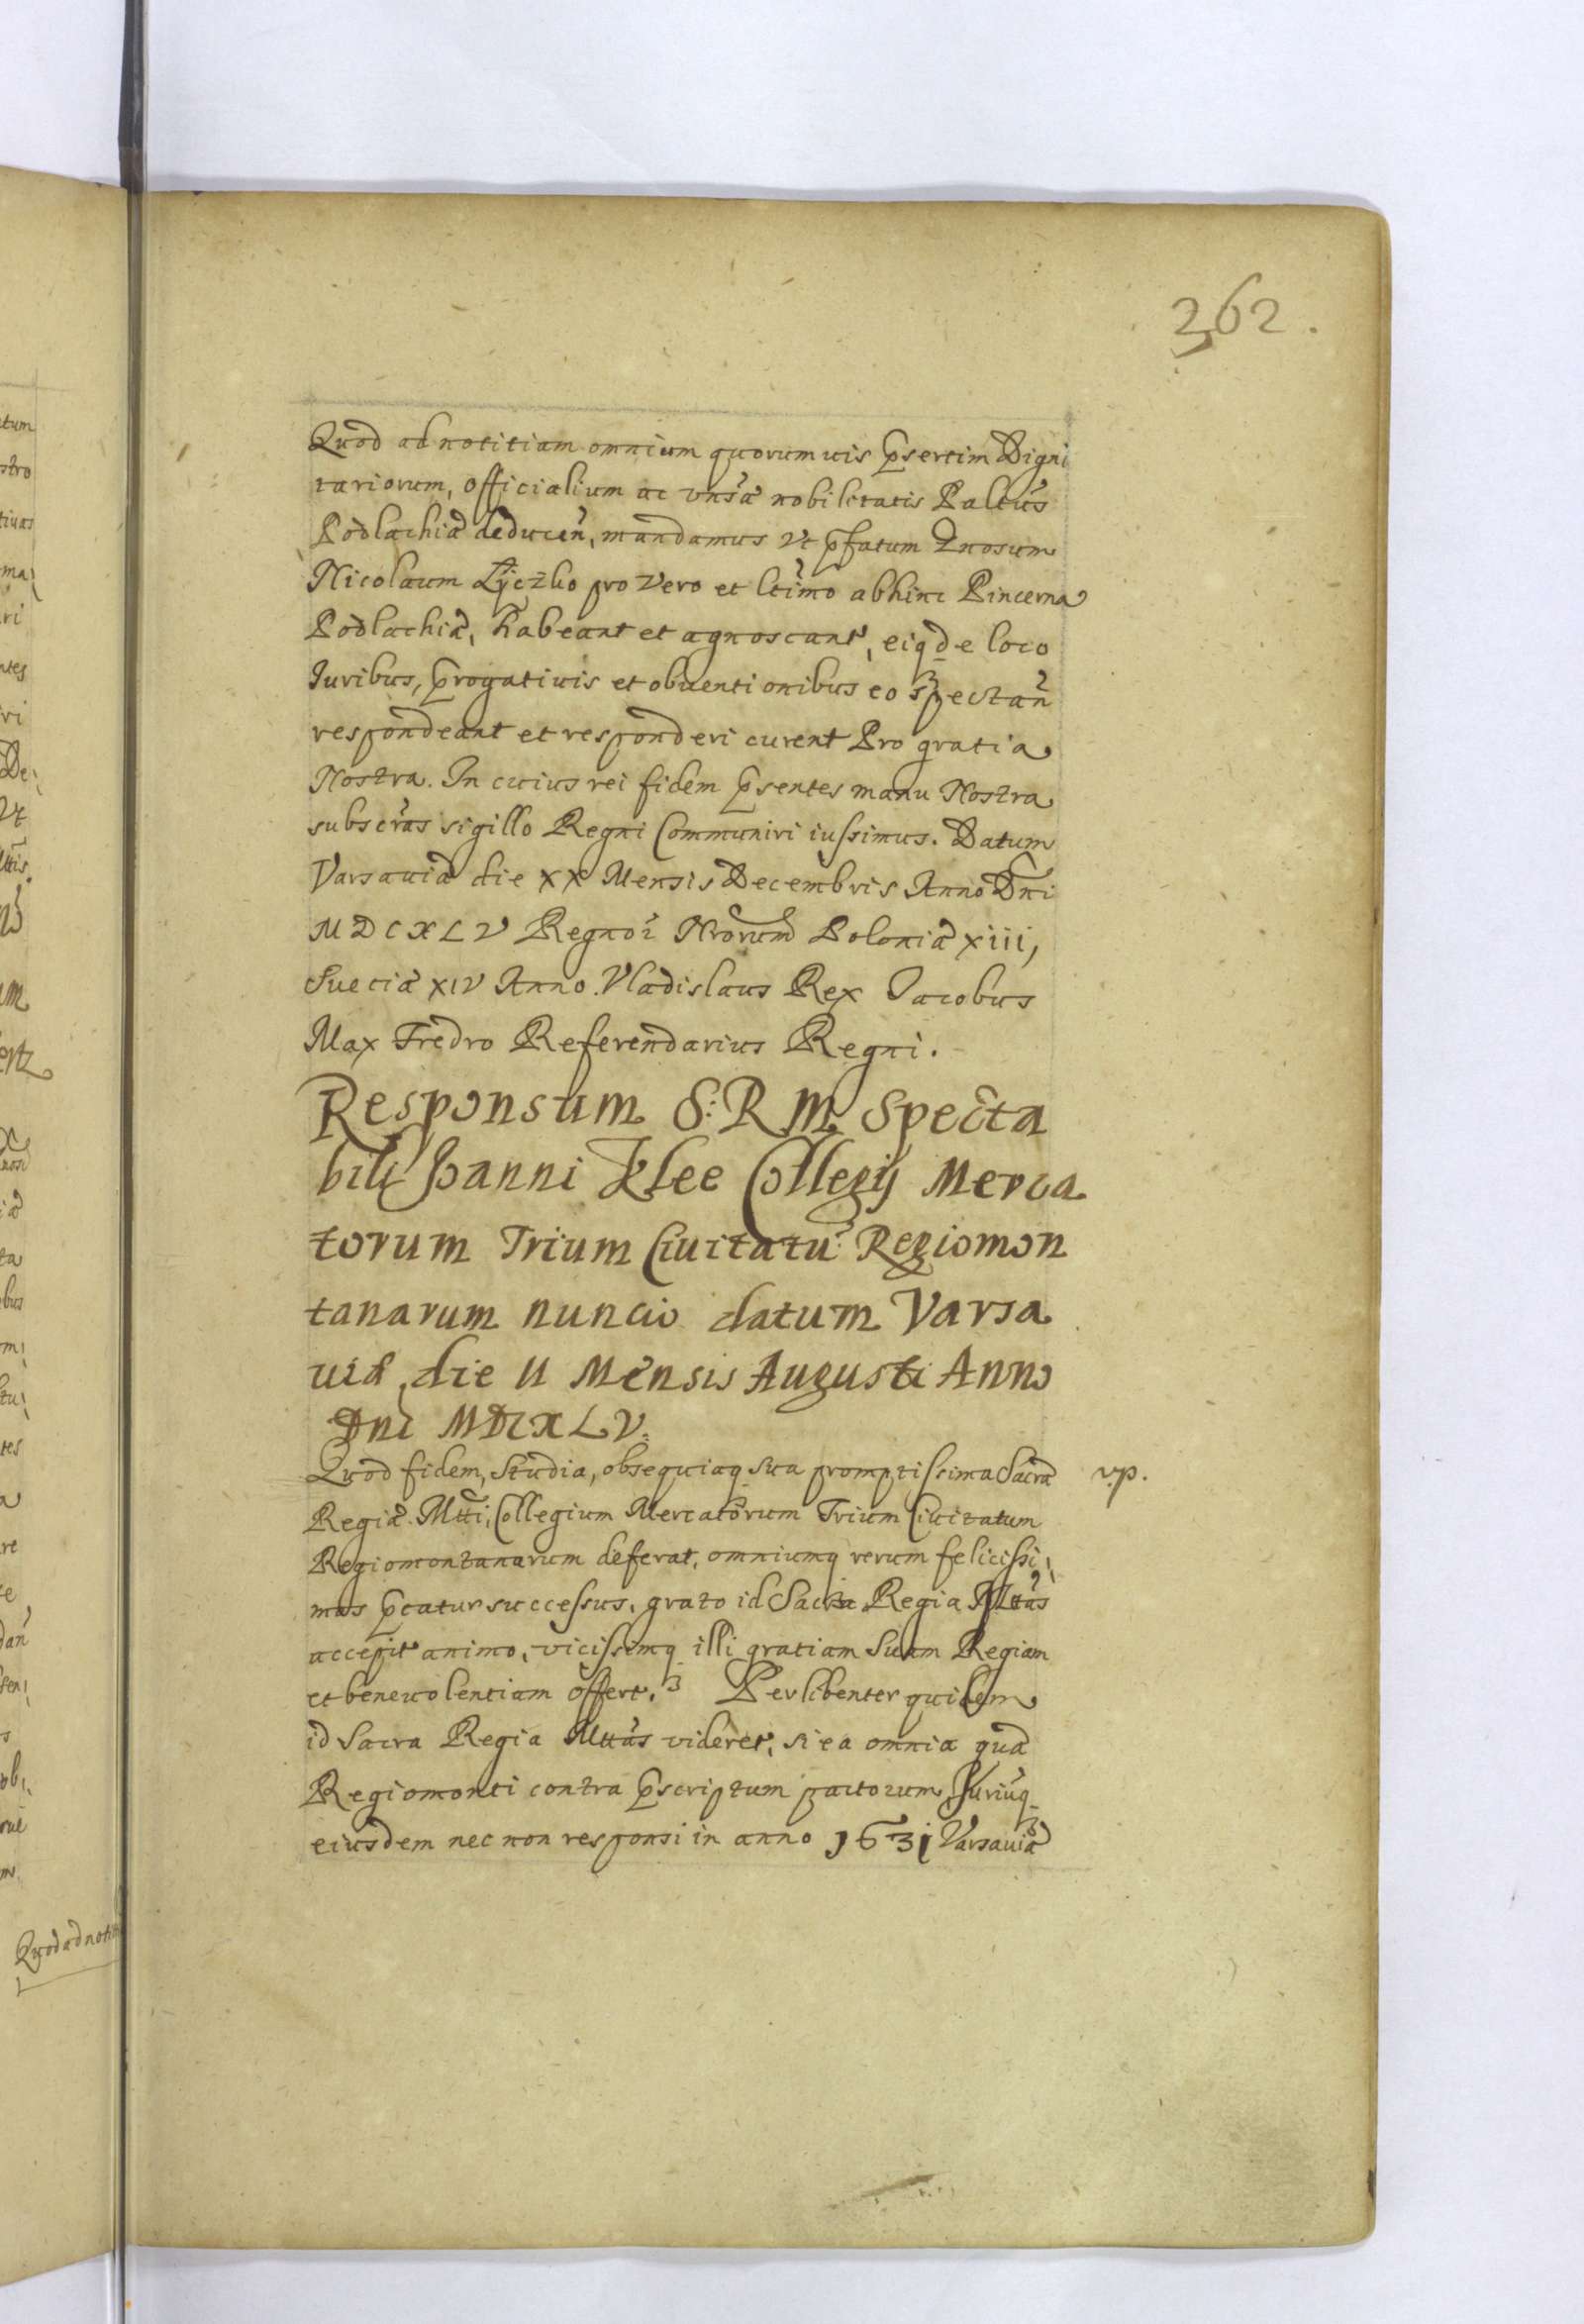 362.
Quod ad notitiam omnium quorumuis p̱sertim Digni
tariorum, officialium ac vnsã nobilitatis Paltũs
Podlachiæ deducen̄, mandamus vt p̱fatum Gnosum
Nicolaum Łyczko pro vero et ltĩmo abhinc Pincerna
Podlachiæ, habeant et agnoscant, eiq̱ de loco
Juribus, p̱rogatiuis et obuentionibus eo spectan̄
respondeant et responderi curent Pro gratia
Nostra. In cuius rei fidem p̱sentes manu Nostra
subscrãs sigillo Regni Communiri iussimus. Datum
Varsauiæ die XX Mensis Decembris Anno Dn̄i
MDCXLV Regnor̄ Nrorum Poloniæ xiii,
Sueciæ XIV Anno. Vladislaus Rex Jacobus
Max Fredro Referendarius Regni.
Responsum S: R M Specta
bili Joanni Klee Collegij Merca
torum Trium Ciuitatũ Regiomon
tanarum nuncio datum Varsa
uiæ, die 11 Mensis Augusti Anno
Dni MDCXLV.
Quod fidem, Studia, obsequiaq̱ sua promptissima Sacræ
v.p.
Regiæ Mtti, Collegium Mercatorum Trium Ciuitatum
Regiomontanarum deferat, omniumq̱ rerum felicissi
mos p̱catur successus, grato id Sacra Regia Mttãs
accepit animo, vicissimq̱ illi gratiam Suam Regiam
et beneuolentiam offert. Perlibenter quidem
id Sacra Regia Mttãs videret, si ea omnia quæ
Regiomonti contra p̱scriptum pactorum, Juriũq̱
eiusdem nec non responsi in anno 1631 Varsauiæ
Quod ad notiti